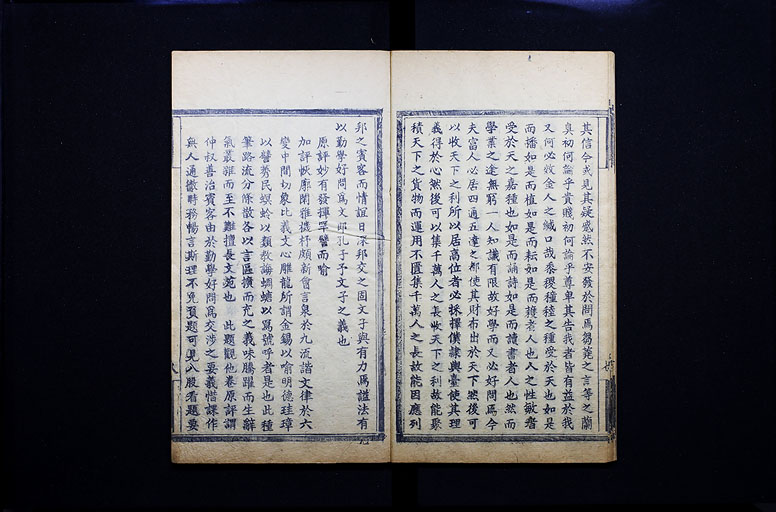 其信今或見其疑惑然不安發於問焉芻蕘之言等之蘭
臭初何論乎貴賤初何論乎尊卑其告我者皆有益於我
又何必效金人之緘口哉黍稷種稑之種受於天也如是
而播如是而植如是而耘如是而穫者人也人之性敏者
受於天之嘉種也如是而誦詩如是而讀書者人也然而
學業之途無窮一人知識有限故好學而又必好問焉今
夫富人必居四通五達之都使其財布出於天下然後可
以收天下之利所以居高位者必採擇僕隸與臺使其理
義得於心然後可以集千萬人之長收天下之利故能聚
積天下之貨物而運用不匱集千萬人之長故能因應列
邦之賓客而情誼日深邦交之固文子與有力焉謚法有
以勤學好問爲文即孔子予文子之義也
原評妙有發揮罕譬而喻
加評恢廓閎雅機杼頗新會言泉於九流諧文律於六
變中間切象比義文心雕龍所謂金錫以喻明德珪璋
以譬秀民螟蛉以類教誨蜩螗以寫號呼者是也此種
筆路流分條散各以言區擴而充之義味騰躍而生辭
氣叢雜而至不難擅長文苑也 此題觀他卷原評謂
仲叔善治賓客由於勤學好問爲交涉之要義惜課作
無人通徹時務暢言斯理不免負題可見八股看題要